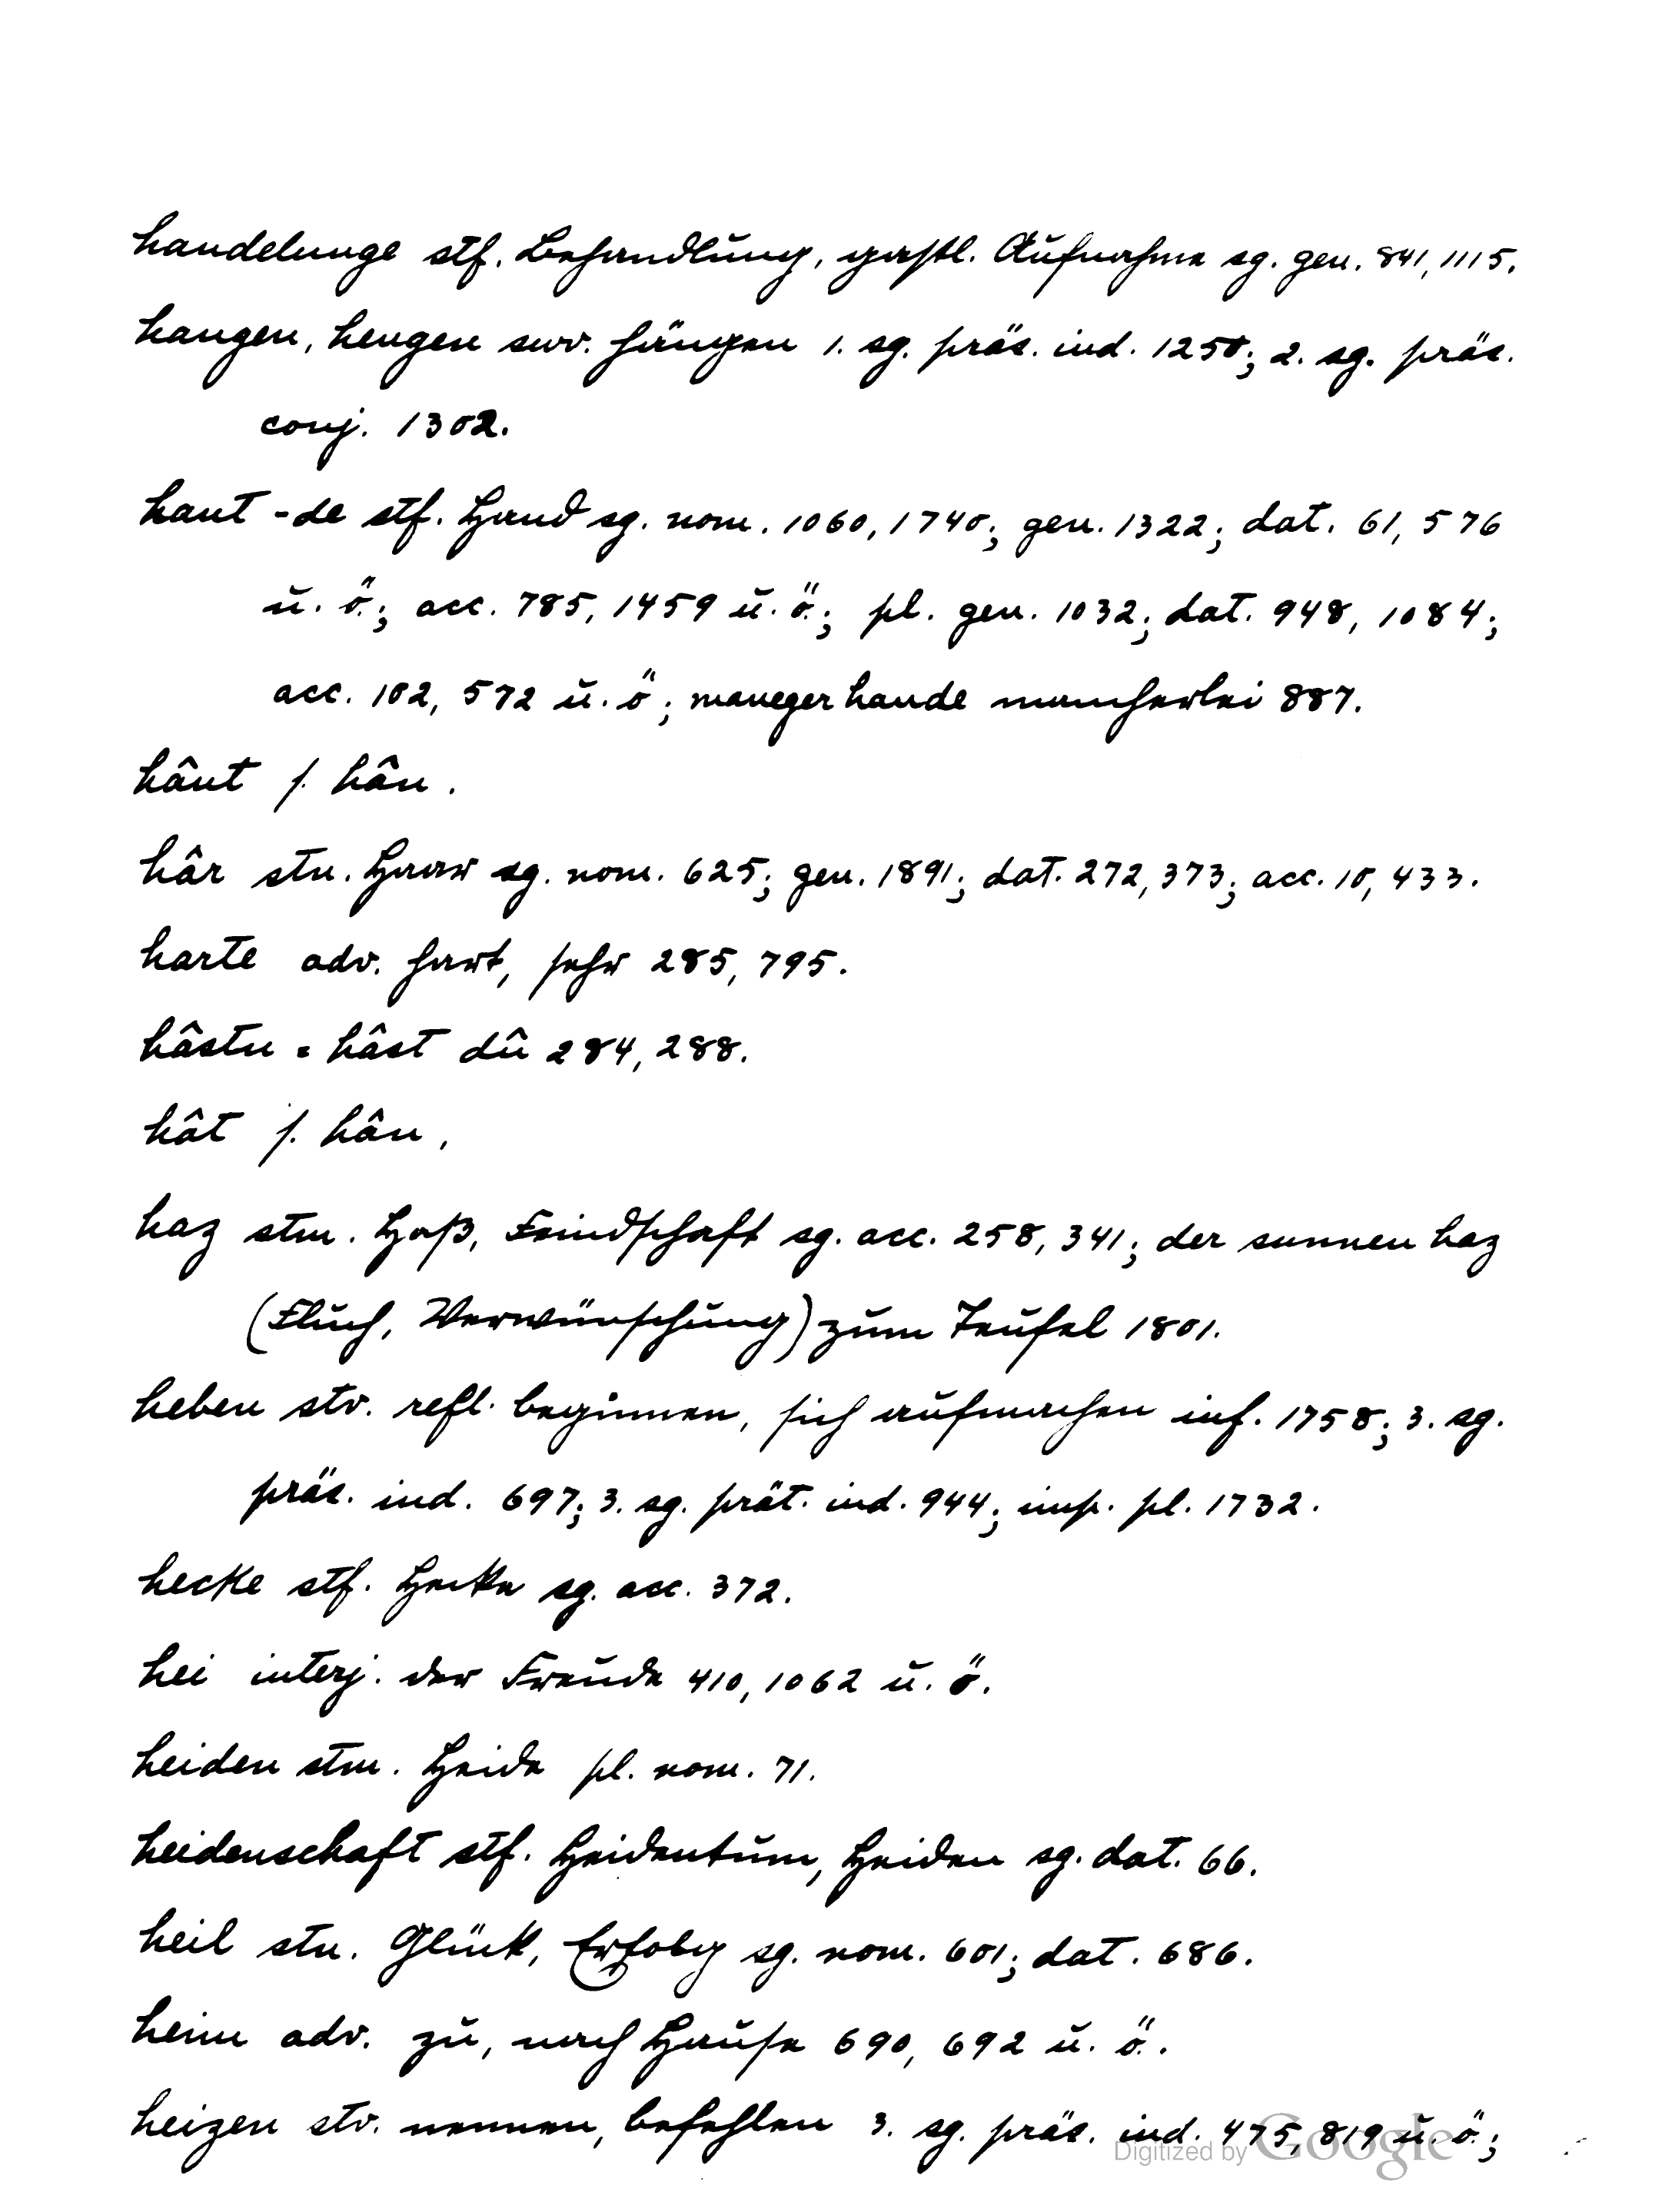 handelunge stf. Behandlung, gastl. Aufnahme sg. gen. 841, 1115.
hangen, hengen swv. hängen 1. sg. präs. ind. 1250; 2. sg. präs.
conj. 1302.
hant -de stf. Hand sg. nom. 1060, 1740; gen. 1322; dat. 61, 576
u. ö.; acc. 785, 1459 u. ö.; pl. gen. 1032; dat. 948, 1084;
acc. 102, 572 u. ö; maneger hande mancherlei 887.
hânt s. hân.
hâr stn. Haar sg. nom. 625; gen. 1891; dat. 272, 373; acc. 10, 433.
harte adv. hart, sehr 285, 795.
hâstu = hâst dû 284, 288.
hât s. hân,
haz stm. Haß, Feindschaft sg. acc. 258, 341; der sunnen haz
(Fluch, Verwünschung) zum Teufel 1801.
heben stv. refl. beginnen, sich aufmachen inf. 1758; 3. sg.
präs. ind. 697; 3. sg. prät. ind. 944; imp. pl. 1732.
hecke stf. Hecke sg. acc. 372.
hei interj. der Freude 410, 1062 u. ö.
heiden stm. Heide pl. nom. 71.
heidenschaft stf. Heidentum, Heiden sg. dat. 66.
heil stn. Glück, Erfolg sg. nom. 601; dat. 686.
heim adv. zu, nach Hause 690, 692 u. ö.
heizen stv. nennen, befehlen 3. sg. präs. ind. 475, 819 u. ö.;
Digitized by Google